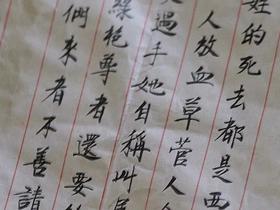 姓的死去都是西
人放血草菅人
過手她自稱叫
綠袍尊者還要
們來者不善請